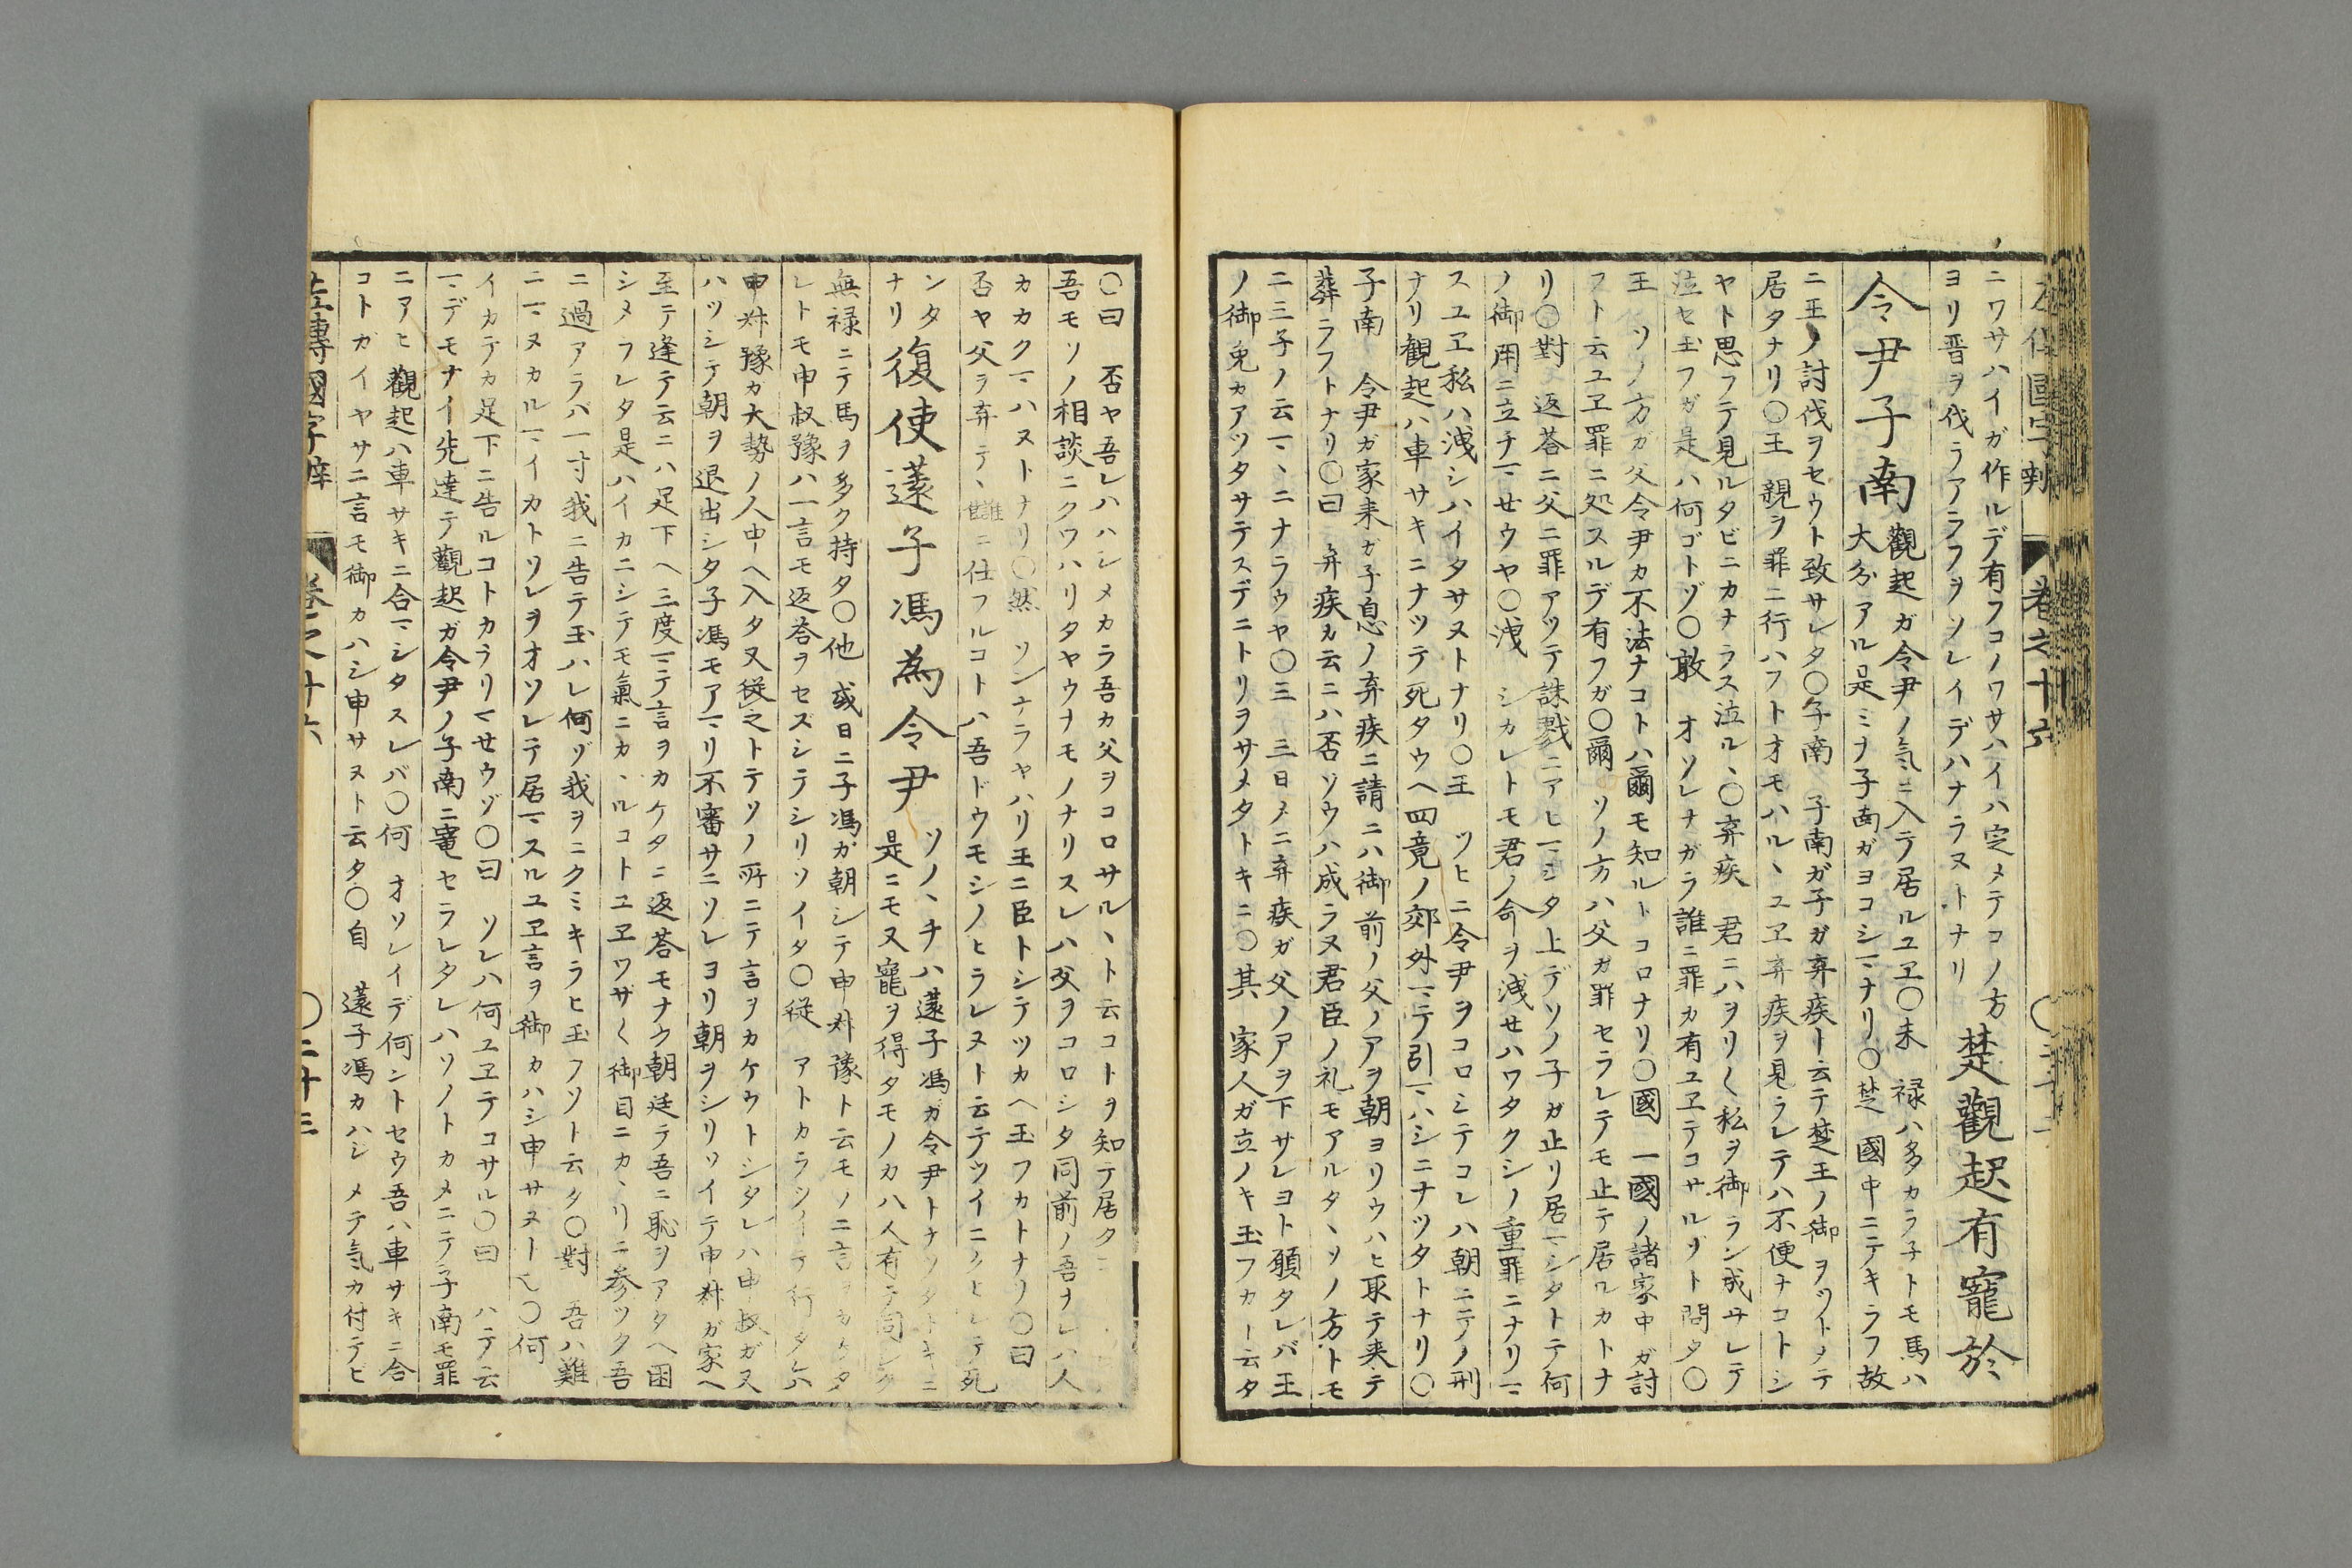 ニワサハイガ作ルデ有フコノワサハイハ定メテコノ方
ヨリ晋ヲ伐ラアラフヲソレイデハナラヌトナリ
楚觀起有寵於
令尹子南
觀起ガ令尹ノ気ニ入テ居ルユヱ○未 禄ハ多カラ子トモ馬ハ
大分アル是ミナ子南ガヨコシマナリ○楚 國中ニテキラフ故
ニ王ノ討伐ヲセウト致サレタ○子南 子南ガ子ガ弃疾ト云テ楚王ノ御ヲツトメテ
居タナリ○王 親ヲ罪ニ行ハフトオモハルヽユヱ弃疾ヲ見ラレテハ不便ナコトシ
ヤト思フテ見ルタビニカナラス泣ルヽ○弃疾 君ニハヲリ〱私ヲ御ラン成サレテ
泣セ玉フガ是ハ何ゴトゾ○敢 オソレナガラ誰ニ罪カ有ユヱテコサルゾト問タ○
王 ソノ方ガ父令尹カ不法ナコトハ爾モ知ルトコロナリ○國 一國ノ諸家中ガ討
フト云ユヱ罪ニ処スルデ有フガ○爾 ソノ方ハ父ガ罪セラレテモ止テ居ルカトナ
リ○對 返荅ニ父ニ罪アツテ誅戮ニアヒマシタ上デソノ子ガ止リ居マシタトテ何
ノ御用ニ立チマせウヤ○洩 シカレトモ君ノ命ヲ洩せハワタクシノ重罪ニナリマ
スユヱ私ハ洩シハイタサヌトナリ○王 ツヒニ令尹ヲコロシテコレハ朝ニテノ刑
ナリ觀起ハ車サキニナツテ死タウヘ四竟ノ郊外マテ引マハシニナツタトナリ○
子南 令尹ガ家来ガ子息ノ弃疾ニ請ニハ御前ノ父ノアヲ朝ヨリウハヒ取テ夾テ
葬ラフトナリ○曰 弃疾カ云ニハ否ソウハ成ラヌ君臣ノ礼モアルタヽソノ方トモ
二三子ノ云マヽニナラウヤ○三 三日メニ弃疾ガ父ノアヲ下サレヨト願タレバ王
ノ御免カアツタサテスデニトリヲサメタトキニ○其 家人ガ立ノキ玉フカー云タ
○曰 否ヤ吾レハハシメカラ吾カ父ヲコロサルヽト云コトヲ知テ居タ
吾モソノ相談ニクワハリタヤウナモノナリスレハ父ヲコロシタ同前ノ吾ナレハ人
カカクマハヌトナリ○然 ソンナラヤハリ王ニ臣トシテツカヘ玉フカトナリ○曰
否ヤ父ラ弃テヽ讎ニ仕フルコトハ吾ドウモシノヒラレヌト云テツイニクヒレテ死
ンタ
ナリ
復使薳子馮為令尹
ソノヽチハ薳子馮ガ令尹トナツタトキニ
是ニモ又寵ヲ得タモノカ八人有テ同シク
無禄ニテ馬ヲ多ク持タ○他 或日ニ子馮ガ朝シテ申叔豫ト云モノニ言ヲカケタ
レトモ申叔豫ハ一言モ返荅ヲセズシテシリソイタ○從 アトカラツイテ行タ六
申叔豫カ大勢ノ人中ヘ入タ又從之トテソノ所ニテ言ヲカケウトシタレハ申叔ガ又
ハツシテ朝ヲ退出シタ子馮モアマリ不審サニソレヨリ朝ヲシリソイテ申叔ガ家ヘ
至テ逢テ云ニハ足下ヘ三度マテ言ヲカケタニ返荅モナク朝廷テ吾ニ恥ヲアタヘ困
シメフレタ是ハイカニシテモ氣ニカヽルコトユヱワザ〱御目ニカヽリニ参ツタ吾
ニ過アラハ一寸我ニ告テ玉ハレ何ゾ我ヲニクミキラヒ玉フソト云タ○對 吾ハ難
ニマヌカルマイカトソレヲオソレテ居マスルユヱ言ヲ御カハシ申サヌト也○何
イカデカ足下ニ告ルコトカラリマせウゾ○曰 ソレハ何ユヱテコサル○曰 ハテ云
マデモナイ先達テ觀起ガ令尹ノ子南ニ寵セラレタレハソノトカメニテ子南モ罪
ニアヒ觀起ハ車サキニ合マシタスレバ○何 オソレイデ何ントセウ吾ハ車サキニ合
コトガイヤサニ言モ御カハシ申サヌト云タ○自 薳子馮カハシメテ気カ付テビ
左傳國字辨 卷之十六 ○二十三